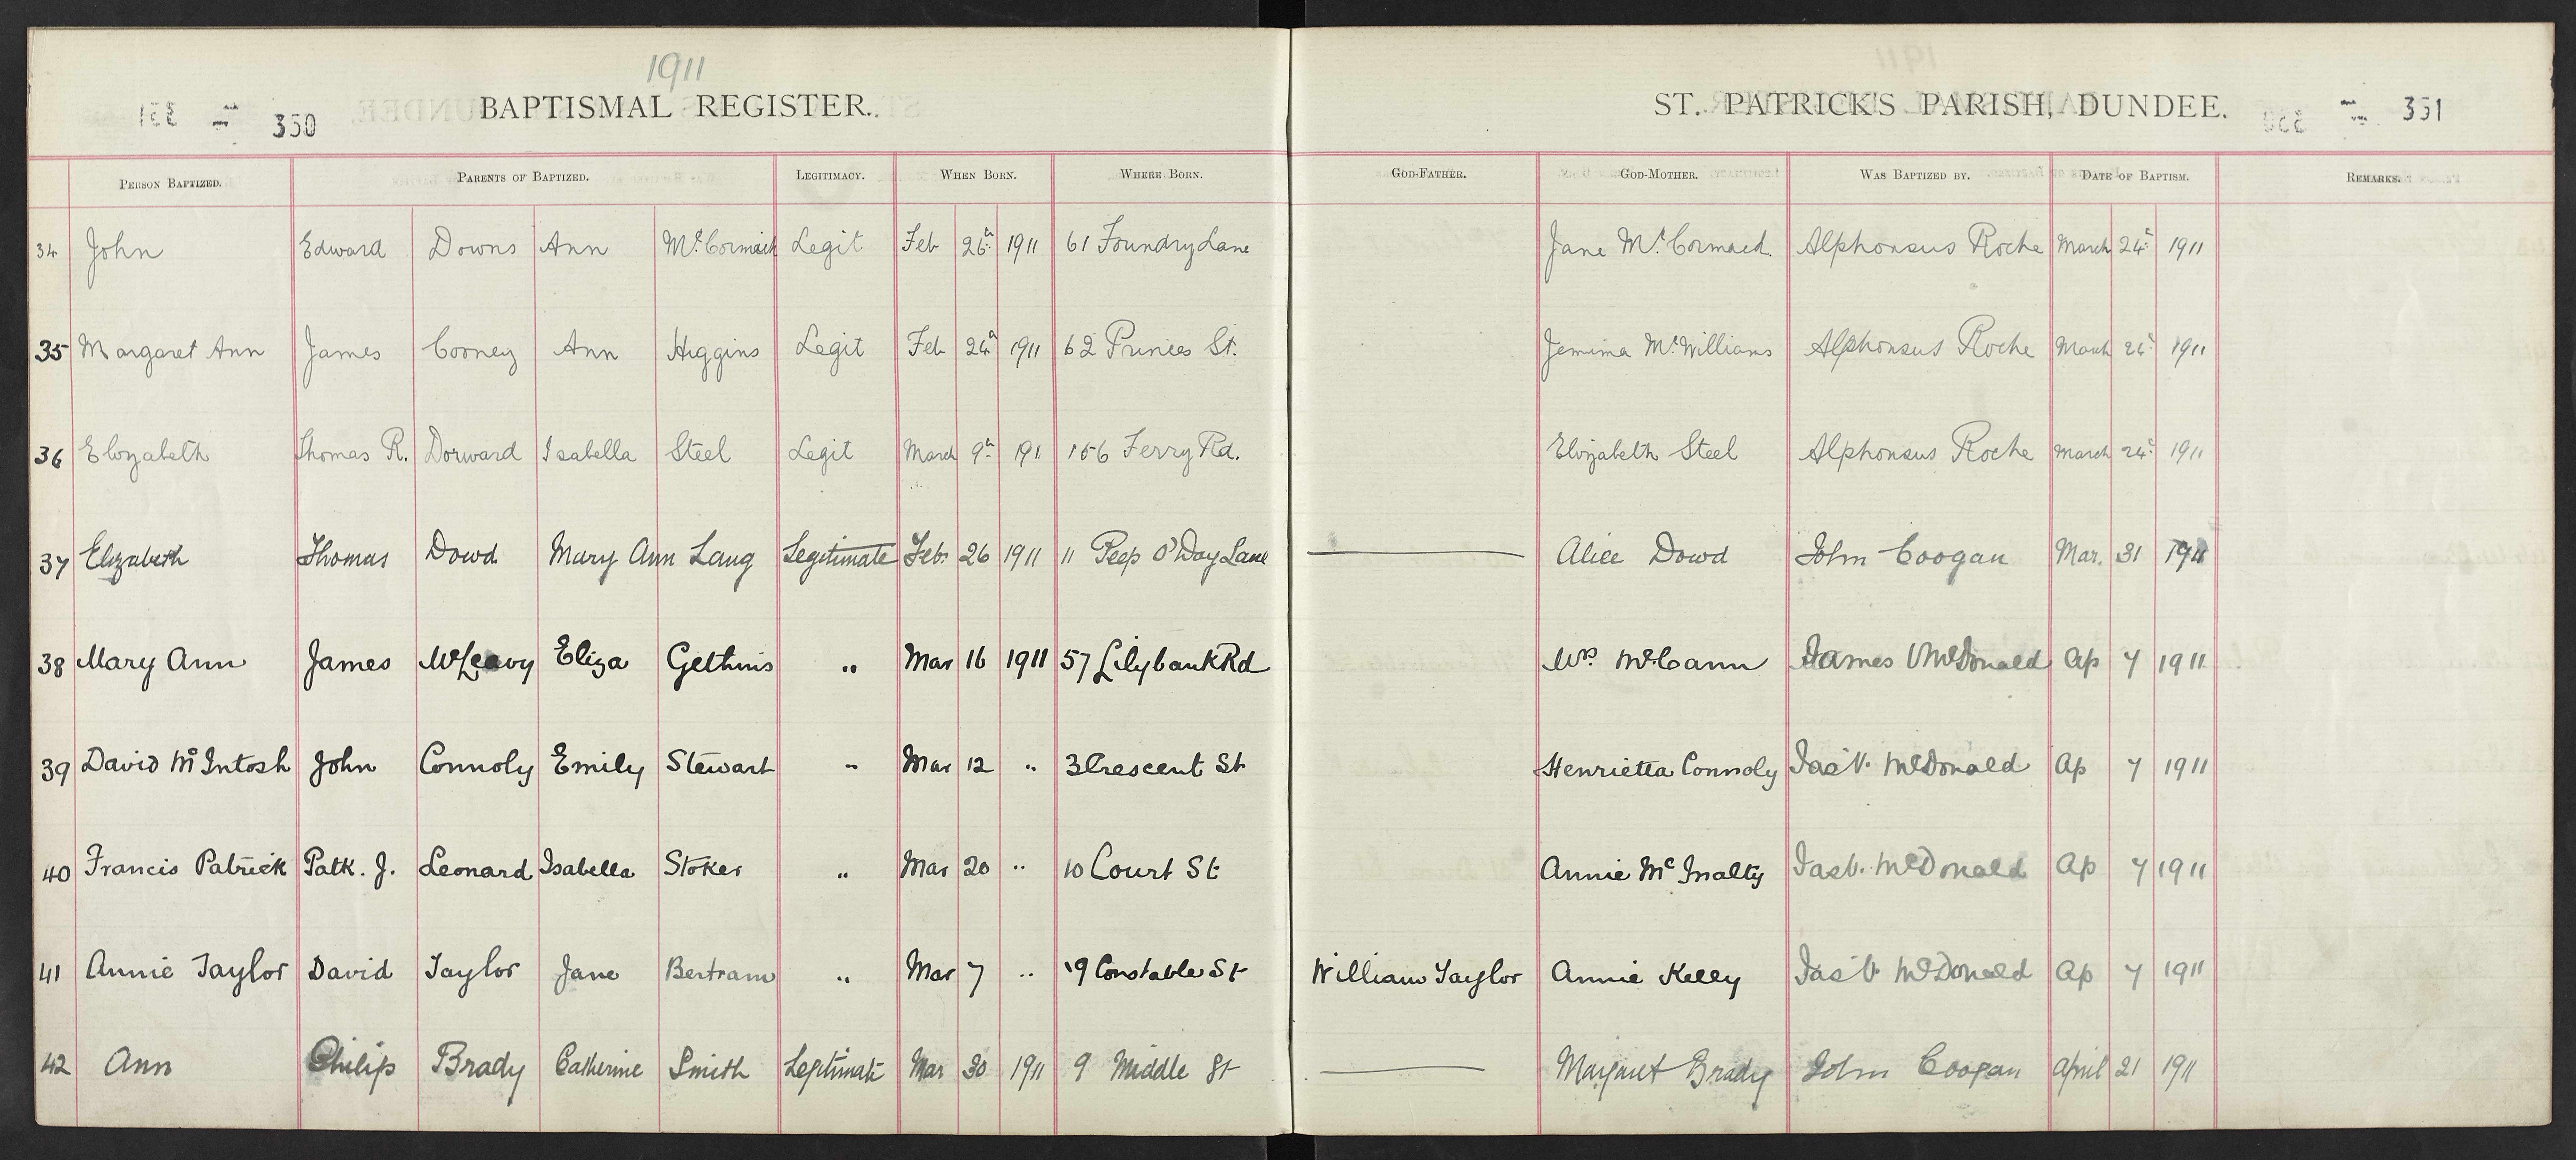 1911
350 BAPTISMAL REGISTER. ST. PATRICK'S PARISH, DUNDEE. 351
PERSON BAPTIZED. PARENTS OF BAPTIZED. LEGITIMACY. WHEN BORN. WHERE BORN. GOD-FATHER. GOD-MOTHER. WAS BAPTIZED BY. DATE OF BAPTISM. REMARKS.
34 John Edward Downs Ann McCormack Legit Feb 26th 1911 61 Foundry Lane Jane McCormack. Alphonsus Roche March 24th 1911
35 Margaret Ann James Cooney Ann Higgins Legit Feb 24th 1911 62 Princes St. Jemima McWilliams Alphonsus Roche March 24th 1911
36 Elizabeth Thomas R. Dorward Isabella Steel Legit March 9th 191 156 Ferry Rd. Elizabeth Steel Alphonsus Roche March 24th 1911
37 Elizabeth Thomas Dowd Mary Ann Lang Legitimate Feb. 26 1911 11 Peep O'Day Lane Alice Dowd John Coogan Mar. 31 1911
38 Mary Ann James McLeavy Eliza Gethins " Mar 16 1911 57 Lilybank Rd Mrs McCann James V McDonald Ap 7 1911
39 David McIntosh John Connoly Emily Stewart " Mar 12 " 3 Crescent St Henrietta Connoly Jas V. McDonald Ap 7 1911
40 Francis Patrick Patk. J. Leonard Isabella Stoker " Mar 20 " 10 Court St Annie McInalty Jas V. McDonald Ap 7 1911
41 Annie Taylor David Taylor Jane Bertram " Mar 7 " 19 Constable St William Taylor Annie Kelly Jas V McDonald Ap 7 1911
42 Ann Philip Brady Catherine Smith Legitimate Mar 30 1911 9 Middle St Margaret Brady John Coogan April 21 1911